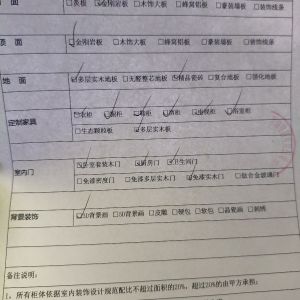 面 □炎板 ☑金刚岩板 □木饰大板 □蜂窝铝板 □豪装墙板 □装饰线条
顶 面 ☑金刚岩板 □木饰大板 □蜂窝铝板 □豪装墙板 □装饰线条
地 面 ☑多层实木地板 □无醛整芯地板 ☑精品瓷砖 □复合地板 □强化地板
定制家具 ☑衣柜 ☑橱柜 ☑鞋柜 ☑酒柜 ☑电视柜 ☑浴室柜
□生态颗粒板 ☑多层实木板
室内门 ☑卧室套装木门 ☑厨房门 ☑卫生间门
□免漆密度门 □免漆多层实木门 ☑免漆实木门 □钛合金玻璃门
背景装饰 ☑5D背景画 □8D背景画 □皮雕 □硬包 □软包 □晶瓷画 □刺绣
备注说明:
1、所有柜体依据室内装饰设计规范配比不超过面积的20%，超过20%的由甲方承担；